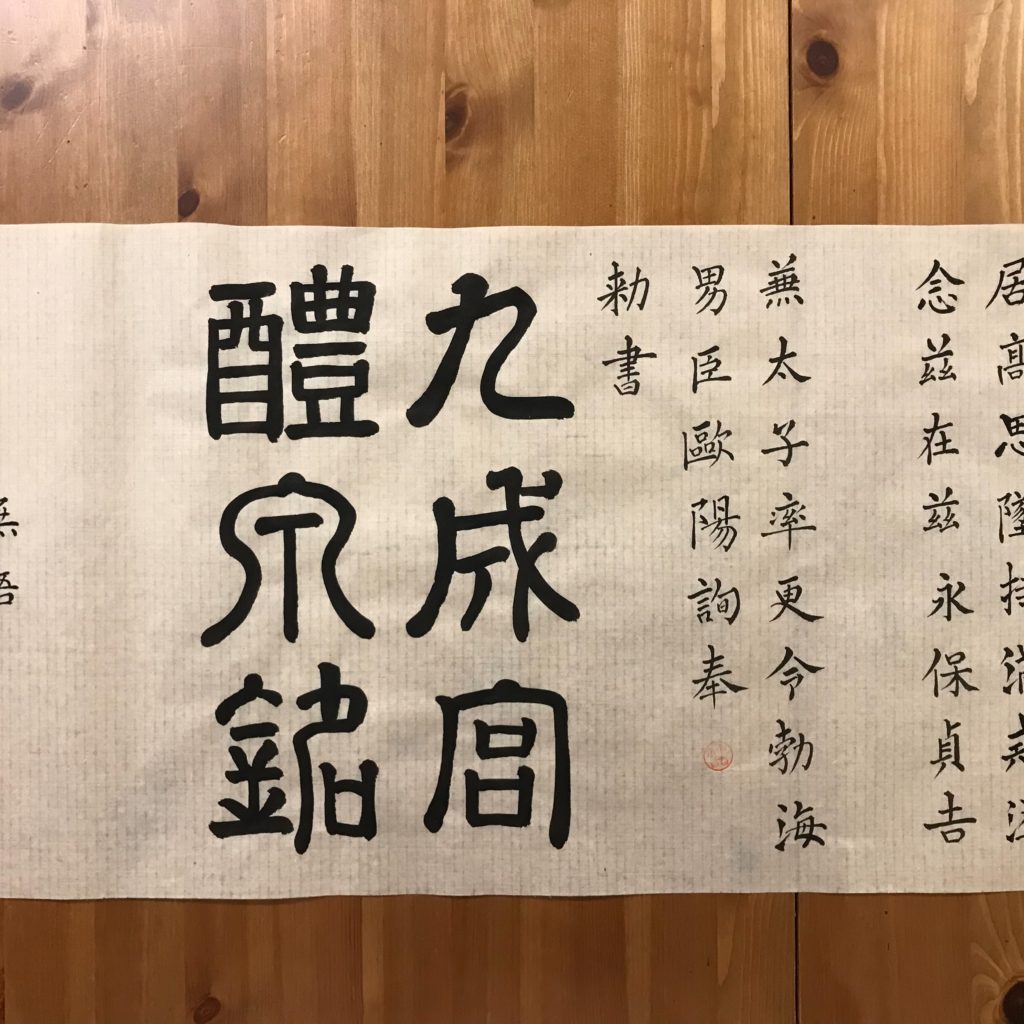 居髙思墜持滿戒溢
念茲在茲永保貞吉
兼太子率更令勃海
男臣歐陽詢奉
勅書
九成宮
醴泉銘